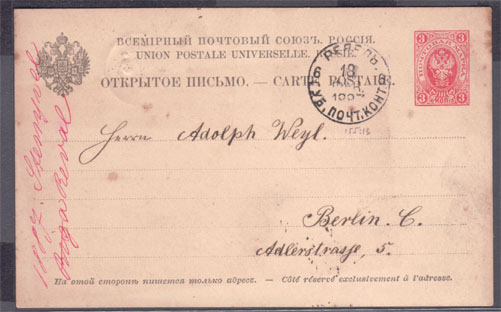 ВСЕМІРНЫЙ ПОЧТОВЫЙ СОЮЗЪ. РОССІЯ.
UNION POSTALE UNIVERSELLE. RUSSIE.
ОТКРЫТОЕ ПИСЬМО. — CARTE POSTALE.
3 3
3 3
РЕВЕЛЬ
18
ПОЧТ. КОНТ.
Herrn Adolph Weyl.
Berlin. C.
Adlerstrasse, 5.
На этой сторонѣ пишется только адресъ. — Côté réservé exclusivement à l'adresse.
Riga Reval